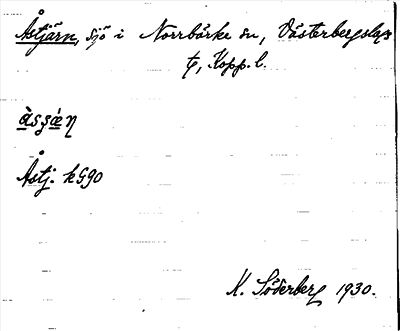 Åstjärn, sjö i Norrbärke sn, Västerbergslags
tg, Kopp. l.
Åstj. kG90
K. Söderberg 1930.